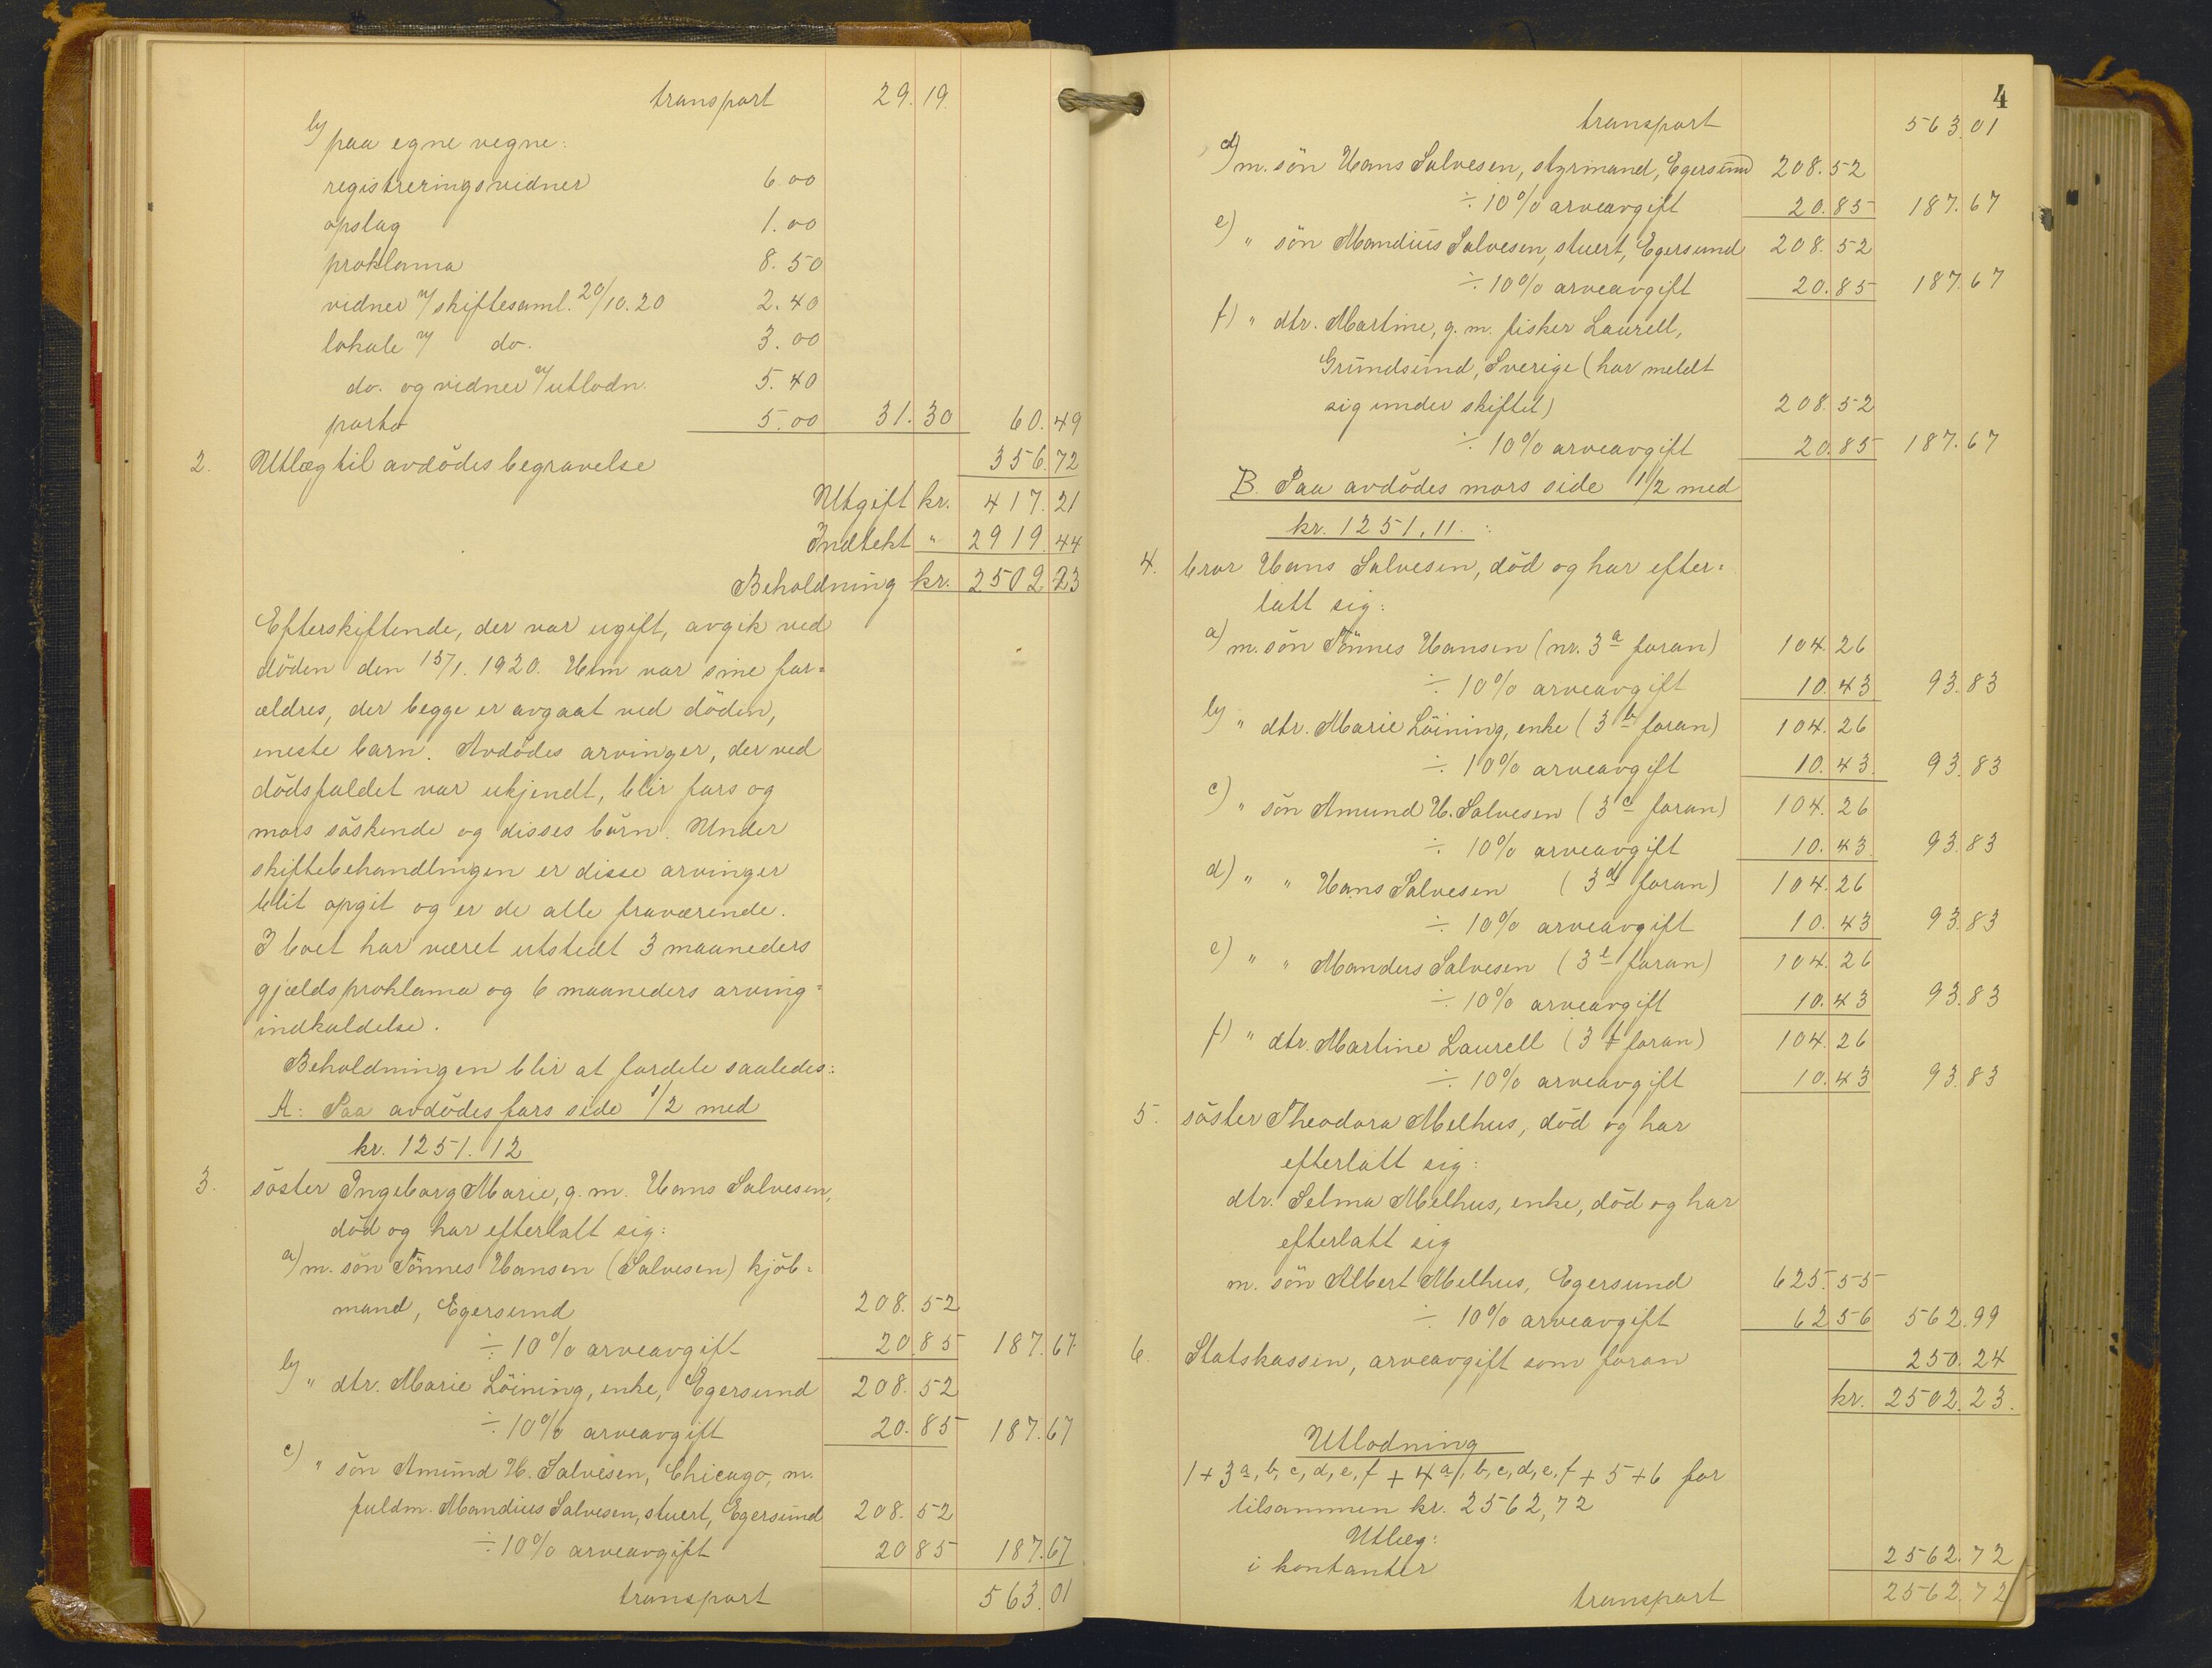 transport 29.19.
b) paa egne vegne:
registreringsvidner 6.00
opslag 1.00
proklama 8.50
vidner v/ skiftesaml. 20/10.20 2.40
lokale v/ do. 3.00
do. og vidner v/ utlodn. 5.40
porto 5.00 31.30 60.49
2. Utlæg til avdödes begravelse 356.72
Utgift kr. 417.21
Indtekt " 2919.44
Beholdning kr. 2502.23
Efterskiftende, der var ugift, avgik ved
döden den 15/1. 1920. Hun var sine for=
ældres, der begge er avgaat ved döden,
eneste barn. Avdödes arvinger, der ved
dödsfaldet var ukjendt, blir fars og
mors söskende og disses börn. Under
skiftebehandlingen er disse arvinger
blit opgit og er de alle fraværende.
I boet har været utstedt 3 maaneders
gjældsproklama og 6 maaneders arving=
indkaldelse.
Beholdningen blir at fordele saaledes:
A: Paa avdödes fars side 1/2 med
kr. 1251.12
3. söster Ingeborg Marie, g. m. Hans Salvesen,
död og har efterlatt sig:
a) m. sön Tönnes Hansen (Salvesen) kjöb=
mand, Egersund 208.52
÷ 10% arveavgift 20.85 187.67
b) " dtr. Marie Löining, enke, Egersund 208.52
÷ 10% arveavgift 20.85 187.67
c) " sön Amund H. Salvesen, Chicago, m.
fuldm. Mandius Salvesen, stuert, Egersund 208.52
÷ 10% arveavgift 20 85 187.67
transport 563.01
4
transport 563.01
d) m. sön Hans Salvesen, styrmand, Egersund 208.52
÷ 10% arveavgift 20.85 187.67
e) " sön Mandius Salvesen, stuert, Egersund 208.52
÷ 10% arveavgift 20.85 187.67
f) " dtr. Martine, g. m. fisker Laurell,
Grundsund, Sverige (har meldt
sig under skiftet) 208.52
÷ 10% arveavgift 20.85 187.67
B. Paa avdödes mors side 1/2 med
kr. 1251.11. :
4. bror Hans Salvesen, död og har efter=
latt sig:
a) m. sön Tönnes Hansen (nr. 3a foran) 104.26
÷ 10% arveavgift 10.43 93.83
b) " dtr. Marie Löining, enke (3b foran) 104.26
÷ 10% arveavgift 10.43. 93.83
c) " sön Amund H. Salvesen (3c foran) 104.26
÷ 10% arveavgift 10.43. 93.83
d) " " Hans Salvesen (3d foran) 104.26
÷ 10% arveavgift 10.43 93.83
e) " " Manders Salvesen (3e foran) 104.26
÷ 10% arveavgift 10.43 93.83
f) " dtr. Martine Laurell (3f foran) 104.26
÷ 10% arveavgift 10.43 93.83
5. söster Theodora Melhus, död og har
efterlatt sig:
dtr. Selma Melhus, enke, död og har
efterlatt sig
m. sön Albert Melhus, Egersund 625.55
÷ 10% arveavgift 62 56 562.99
6. Statskassen, arveavgift som foran 250.24
kr. 2502.23.
Utlodning
1 + 3a, b, c, d, e, f + 4a, b, c, d, e, f + 5 + 6 for
tilsammen kr. 2562,72
Utlæg:
i kontanter 2562.72
transport 2562.72